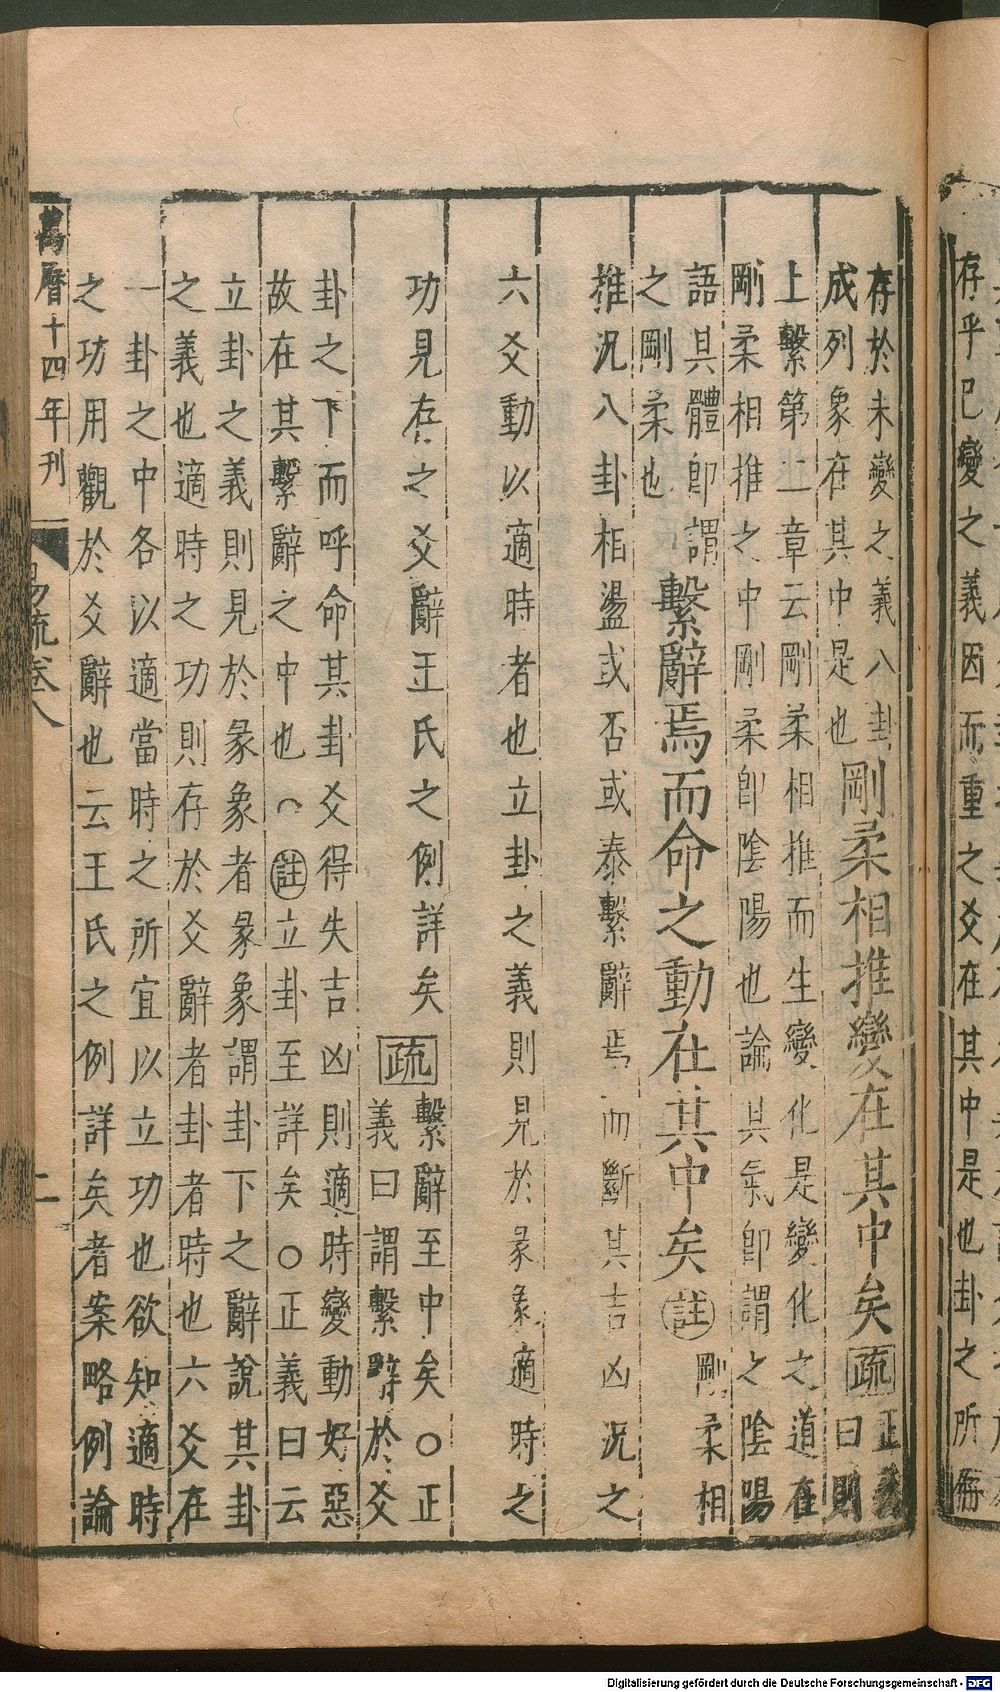 存乎已變之義因而重之爻在其中是也卦之所
存於未變之義八卦
成列象在其中是也
剛柔相推變在其中矣
疏
正義
曰則
上繫第二章云剛柔相推而生變化是變化之道在
剛柔相推之中剛柔即陰陽也論其氣即謂之陰陽
語其體即謂
之剛柔也
繫辭焉而命之動在其中矣
註
剛柔相
推況八卦相盪或否或泰繫辭焉而斷其吉凶況之
六爻動以適時者也立卦之義則見於彖象適時之
功見存之爻辭王氏之例詳矣
疏
繫辭至中矣○正
義曰謂繫辭於爻
卦之下而呼命其卦爻得失吉凶則適時變動好惡
故在其繫辭之中也
註
立卦至詳矣○正義曰云
立卦之義則見於彖象者彖象謂卦下之辭說其卦
之義也適時之功則存於爻辭者卦者時也六爻在
一卦之中各以適當時之所宜以立功也欲知適時
之功用觀於爻辭也云王氏之例詳矣者案略例論
萬曆十四年刊
易疏卷八
二
Digitalisierung gefördert durch die Deutsche Forschungsgemeinschaft - DFG